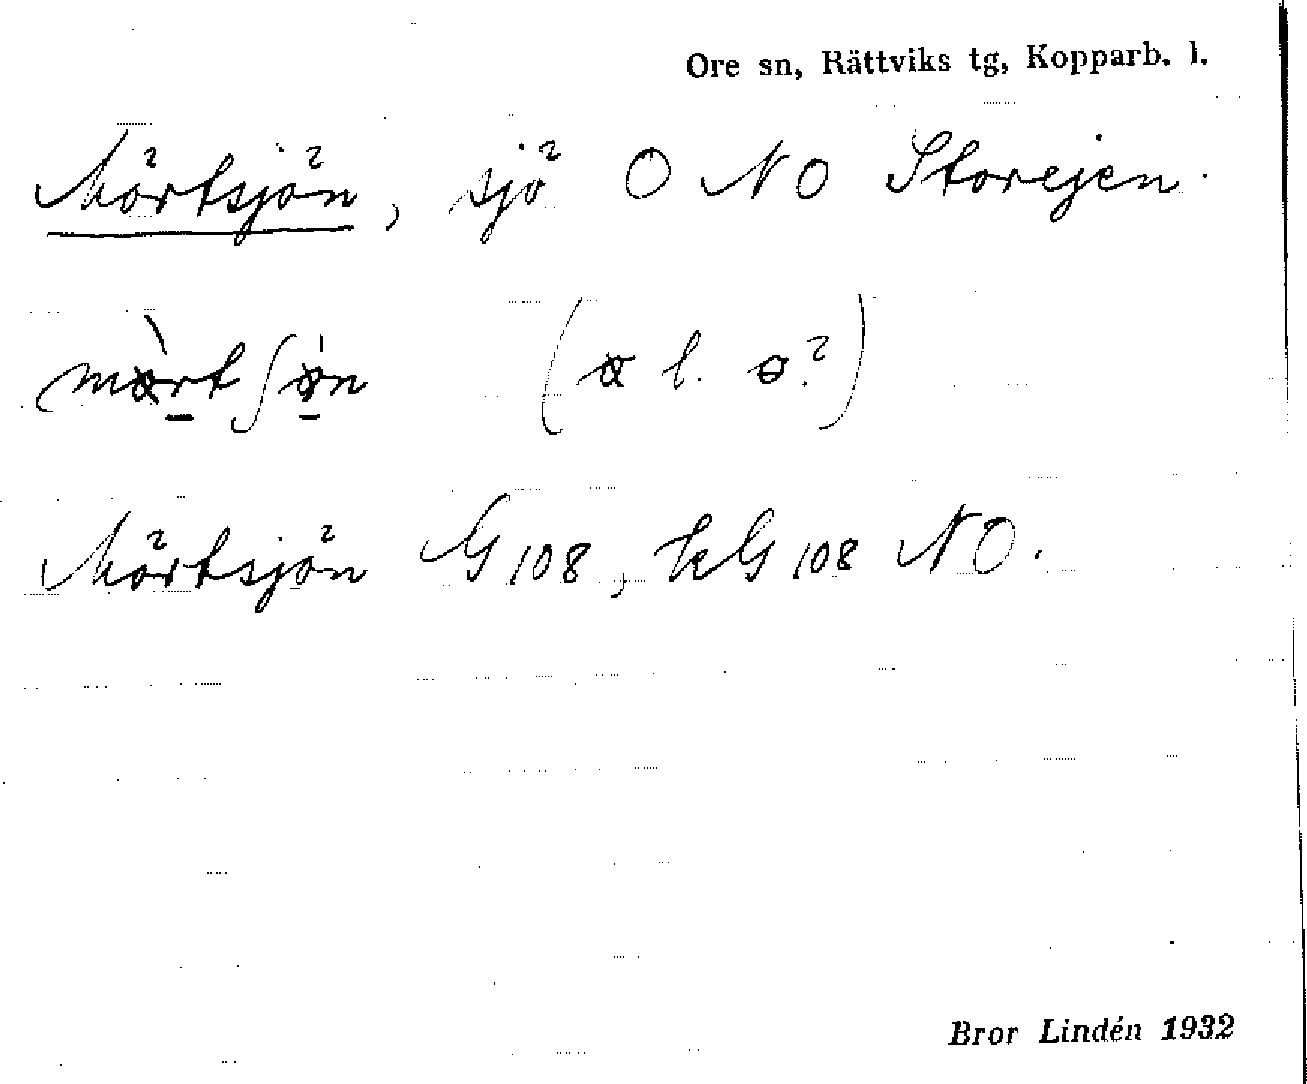 Ore sn, Rättviks tg, Kopparb. l.
Mörtsjön, sjö ONO Storejen.
( l. ?)
Mörtsjön G108, kG108 NO.
Bror Lindén 1932